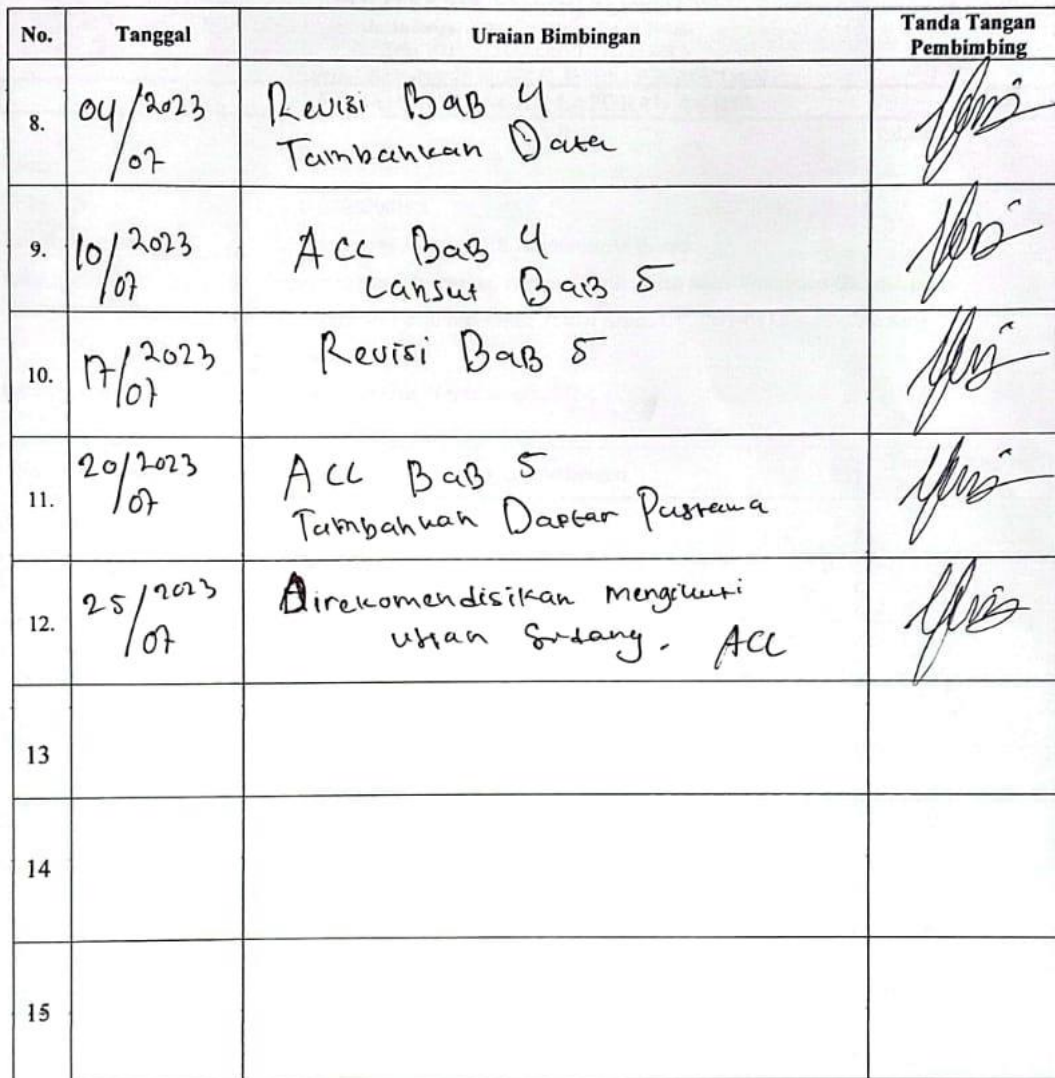 No. Tanggal Uraian Bimbingan Tanda Tangan Pembimbing
8. 04/07 2023 Revisi BaB 4
Tambahkan Data
9. 10/07 2023 ACC BaB 4
Lansut BaB 5
10. 17/07 2023 Revisi BaB 5
11. 20/07 2023 ACC BaB 5
Tambahkan Daftar Pustaka
12. 25/07 2023 Direkomendisikan mengikuti
Sidang. ACC
13
14
15